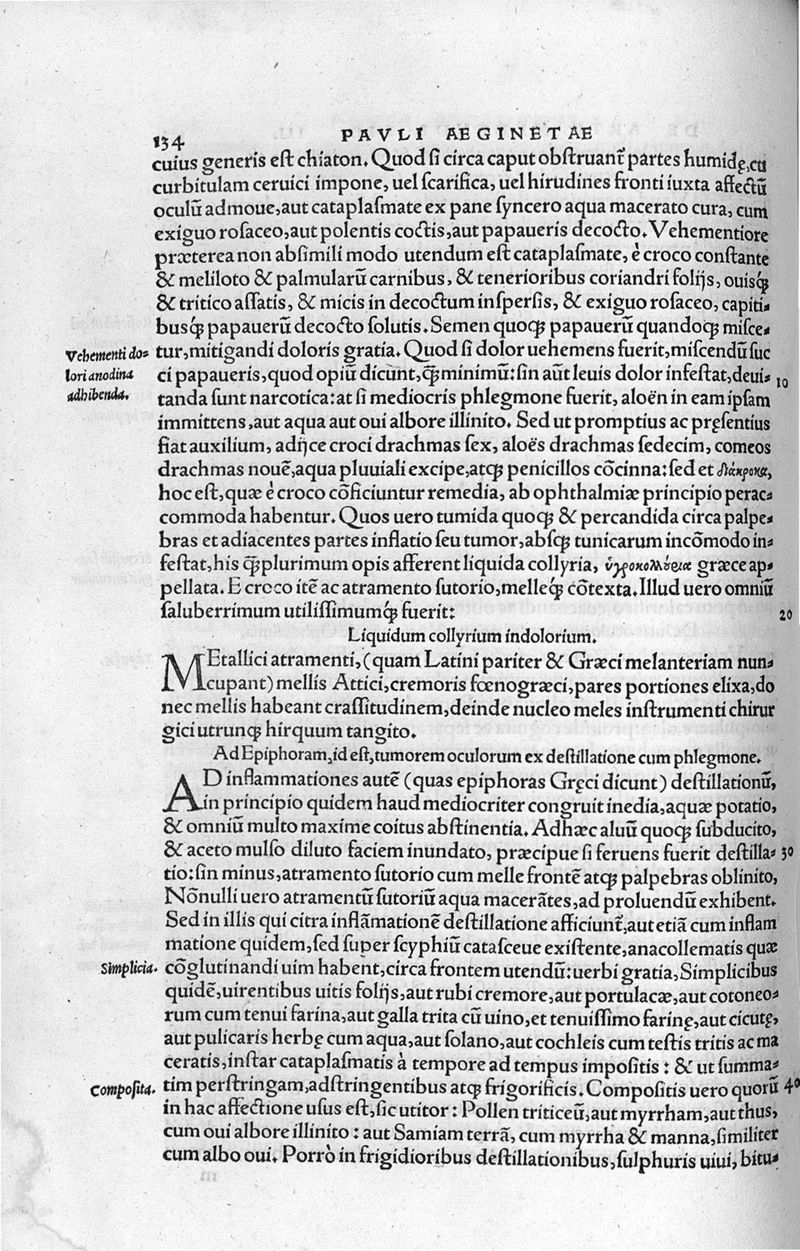 134 PAVLI AEGINETAE
cuius generis est chiaton. Quod si circa caput obstruant᷑ partes humidę, cū
curbitulam ceruici impone, uel scarifica, uel hirudines fronti iuxta affectū
oculū admoue, aut cataplasmate ex pane syncero aqua macerato cura, cum
exiguo rosaceo, aut polentis coctis, aut papaueris decocto. Vehementiore
præterea non absimili modo utendum est cataplasmate, è croco constante
& meliloto & palmularū carnibus, & tenerioribus coriandri folijs, ouisq́;
& tritico assatis, & micis in decoctum inspersis, & exiguo rosaceo, capiti-
busq́; papauerū decocto solutis. Semen quoq; papauerū quandoq; misce-
Vehementi do-
lori anodina
adhibenda.
tur, mitigandi doloris gratia. Quod si dolor uehemens fuerit, miscendū suc
ci papaueris, quod opiū dicunt, q̃minimū: sin aūt leuis dolor infestat, deui- 10
tanda sunt narcotica: at si mediocris phlegmone fuerit, aloën in eam ipsam
immittens, aut aqua aut oui albore illinito. Sed ut promptius ac pręsentius
fiat auxilium, adijce croci drachmas sex, aloës drachmas sedecim, comeos
drachmas nouē, aqua pluuiali excipe, atq; penicillos cōcinna: sed et διάκροκα,
hoc est, quæ è croco cōficiuntur remedia, ab ophthalmiæ principio perac-
commoda habentur. Quos uero tumida quoq; & percandida circa palpe-
bras et adiacentes partes inflatio seu tumor, absq; tunicarum incōmodo in-
festat, his q̃plurimum opis afferent liquida collyria, ὑγροκολλύρια græce ap-
pellata. E croco itē ac atramento sutorio, melleq́; cōtexta. Illud uero omniū
saluberrimum utilissimumq́; fuerit: 20
Liquidum collyrium indolorium.
MEtallici atramenti, (quam Latini pariter & Græci melanteriam nun-
cupant) mellis Attici, cremoris fœnogræci, pares portiones elixa, do
nec mellis habeant crassitudinem, deinde nucleo meles instrumenti chirur
gici utrunq; hirquum tangito.
Ad Epiphoram, id est, tumorem oculorum ex destillatione cum phlegmone.
AD inflammationes autē (quas epiphoras Gręci dicunt) destillationū,
in principio quidem haud mediocriter congruit inedia, aquæ potatio,
& omniū multo maxime coitus abstinentia. Adhæc aluū quoq; subducito,
& aceto mulso diluto faciem inundato, præcipue si feruens fuerit destilla- 30
tio: sin minus, atramento sutorio cum melle frontē atq; palpebras oblinito,
Nōnulli uero atramentū sutoriū aqua macerātes, ad proluendū exhibent.
Sed in illis qui citra inflāmationē destillatione afficiunt᷑, aut etiā cum inflam
matione quidem, sed super scyphiū catasceue existente, anacollematis quæ
Simplicia.
cōglutinandi uim habent, circa frontem utendū: uerbi gratia, Simplicibus
quidē, uirentibus uitis folijs, aut rubi cremore, aut portulacæ, aut cotoneo-
rum cum tenui farina, aut galla trita cū uino, et tenuissimo farinę, aut cicutę,
aut pulicaris herbę cum aqua, aut solano, aut cochleis cum testis tritis ac ma
ceratis, instar cataplasmatis à tempore ad tempus impositis: & ut summa-
Composita.
tim perstringam, adstringentibus atq; frigorificis. Compositis uero quorū 40
in hac affectione usus est, sic utitor: Pollen triticeū, aut myrrham, aut thus,
cum oui albore illinito: aut Samiam terrā, cum myrrha & manna, similiter
cum albo oui. Porrò in frigidioribus destillationibus, sulphuris uiui, bitu-